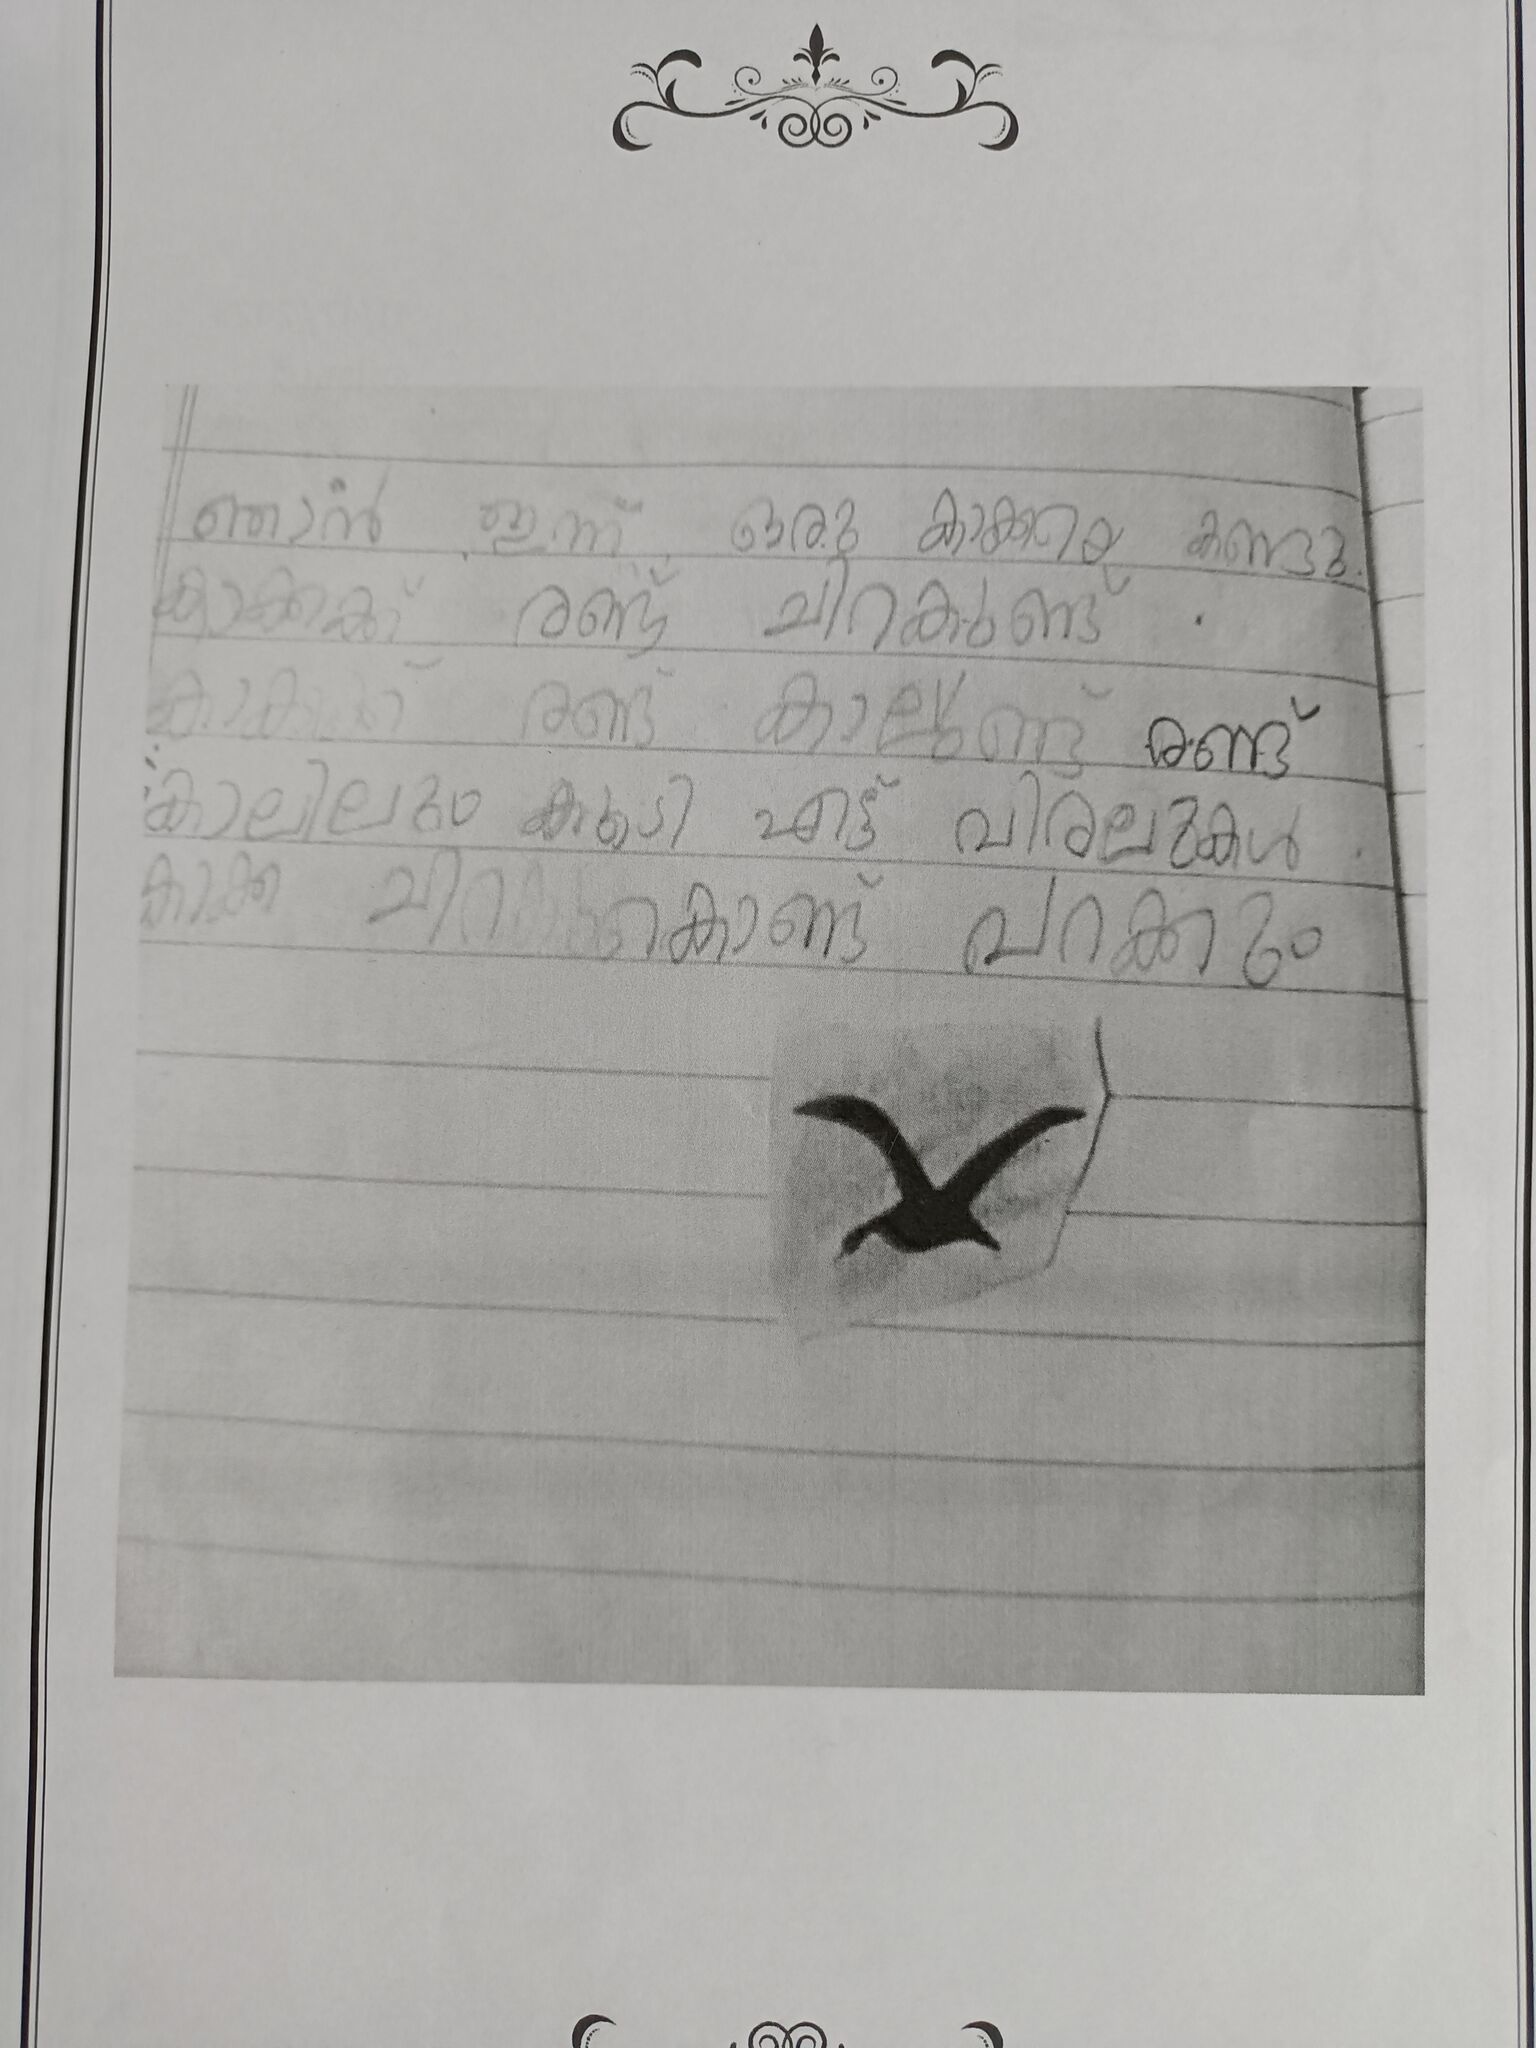 ഞാൻ ഇന്ന് ഒരു കാക്കയെ കണ്ടു.
കാക്കക്ക് രണ്ട് ചിറകുണ്ട് .
രണ്ട് കാലുണ്ട് രണ്ട്
കാലിലും കൂടി എട്ട് വിരലുകൾ .
കാക്ക കൊണ്ട് പറക്കും